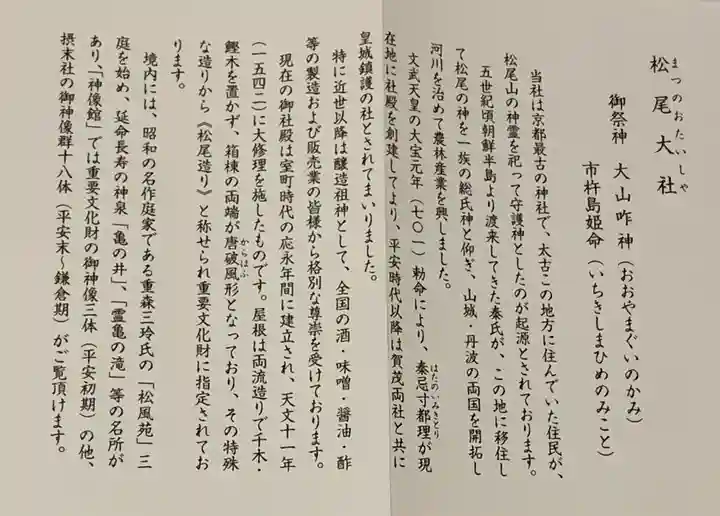 まつのおたいしゃ
松尾大社
御祭神　大山咋神（おおやまぐいのかみ）
市杵島姫命（いちきしまひめのみこと）
当社は京都最古の神社で、太古この地方に住んでいた住民が、
松尾山の神霊を祀って守護神としたのが起源とされております。
五世紀頃朝鮮半島より渡来してきた秦氏が、この地に移住し
て松尾の神を一族の総氏神と仰ぎ、山城・丹波の両国を開拓し
河川を治めて農林産業を興しました。
はたのいみきとり
文武天皇の大宝元年（七〇一）勅命により、秦忌寸都理が現
在地に社殿を創建してより、平安時代以降は賀茂両社と共に
皇城鎮護の社とされてまいりました。
特に近世以降は醸造祖神として、全国の酒・味噌・醤油・酢
等の製造および販売業の皆様から格別な尊崇を受けております。
現在の御社殿は室町時代の応永年間に建立され、天文十一年
（一五四二）に大修理を施したものです。屋根は両流造りで千木・
からはふ
鰹木を置かず、箱棟の両端が唐破風形となっており、その特殊
な造りから《松尾造り》と称せられ重要文化財に指定されてお
ります。
境内には、昭和の名作庭家である重森三玲氏の「松風苑」三
庭を始め、延命長寿の神泉「亀の井」、「霊亀の滝」等の名所が
あり、「神像館」では重要文化財の御神像三体（平安初期）の他、
摂末社の御神像群十八体（平安末〜鎌倉期）がご覧頂けます。